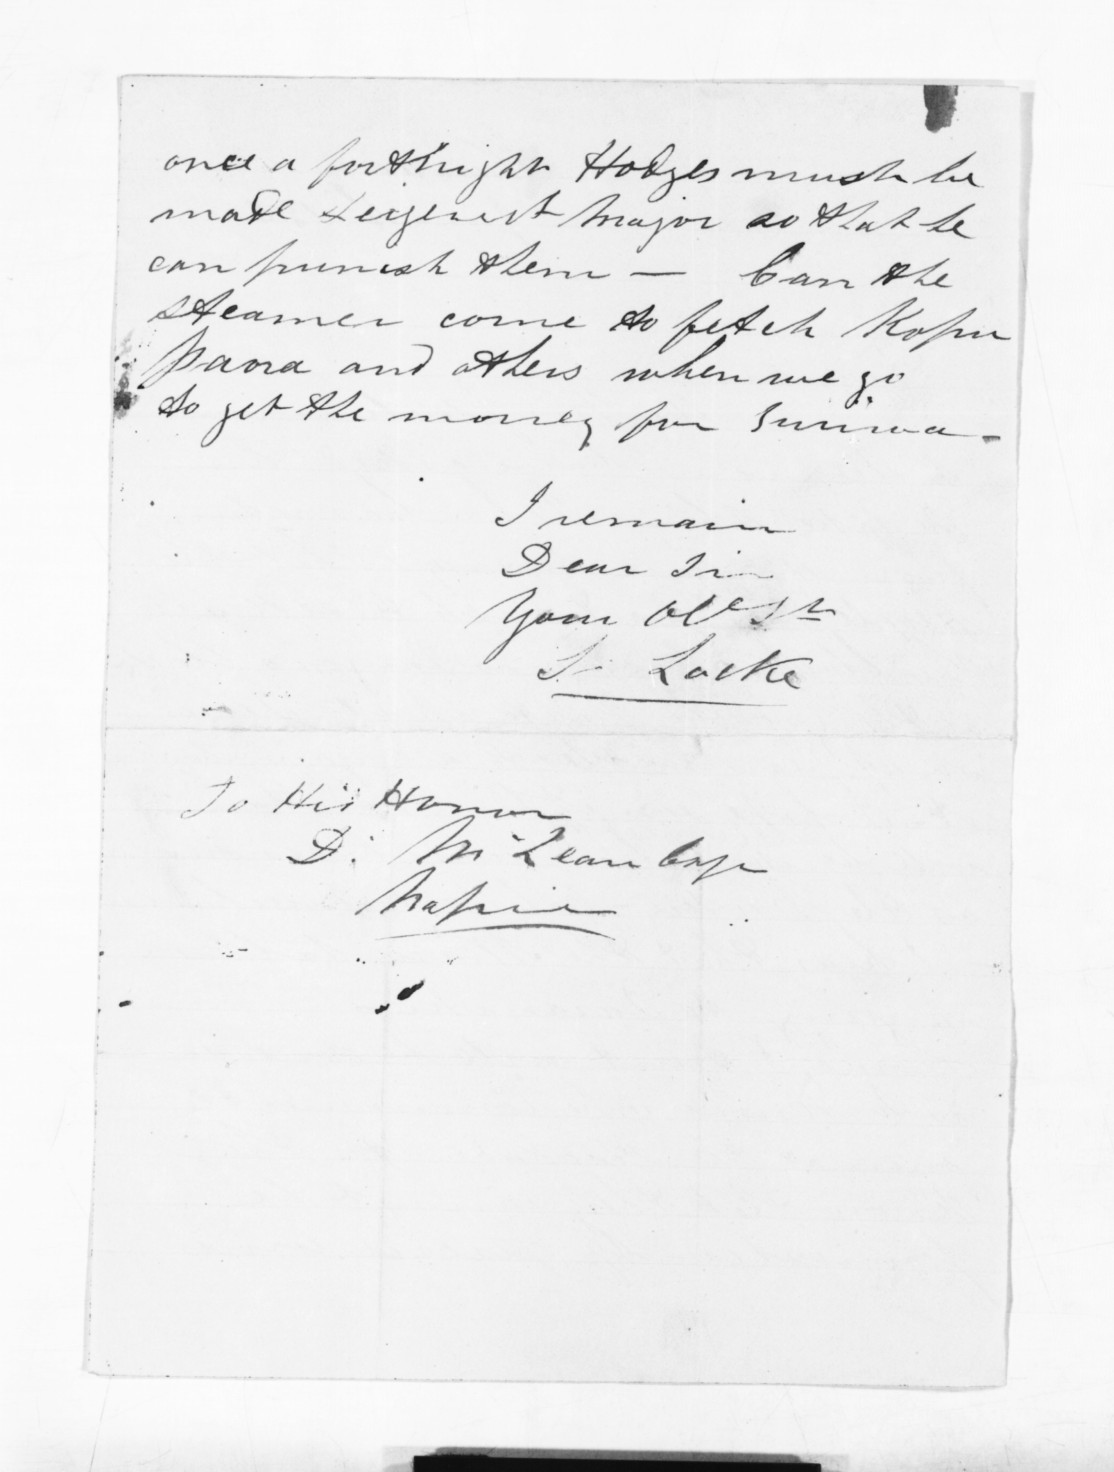 once a fortnight Hodges must be
made Seigenst Major so that he
can punish them — Can the
steamer come to fetch Kopu
paora and others when we go
to get the money for
I remain
Dear Sir
Your Obt St
S. Locke
To His Honor
D. McLean Esqr
Napier